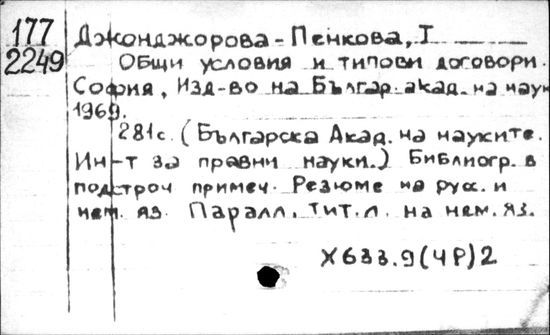 177
2249
Джонджорова-Пенкова, I
Общи условия и типови договори.
София, Изд-во на Българ. акад. на наук
1969.
281с. (Българска Акад. на науките.
Ин-т за правни науки.) Библиогр. в
подстроч примеч. Резюме на русс. и
нем. яз. Паралл. тит. л. на нем. яз.
Х633.9(4Р)2